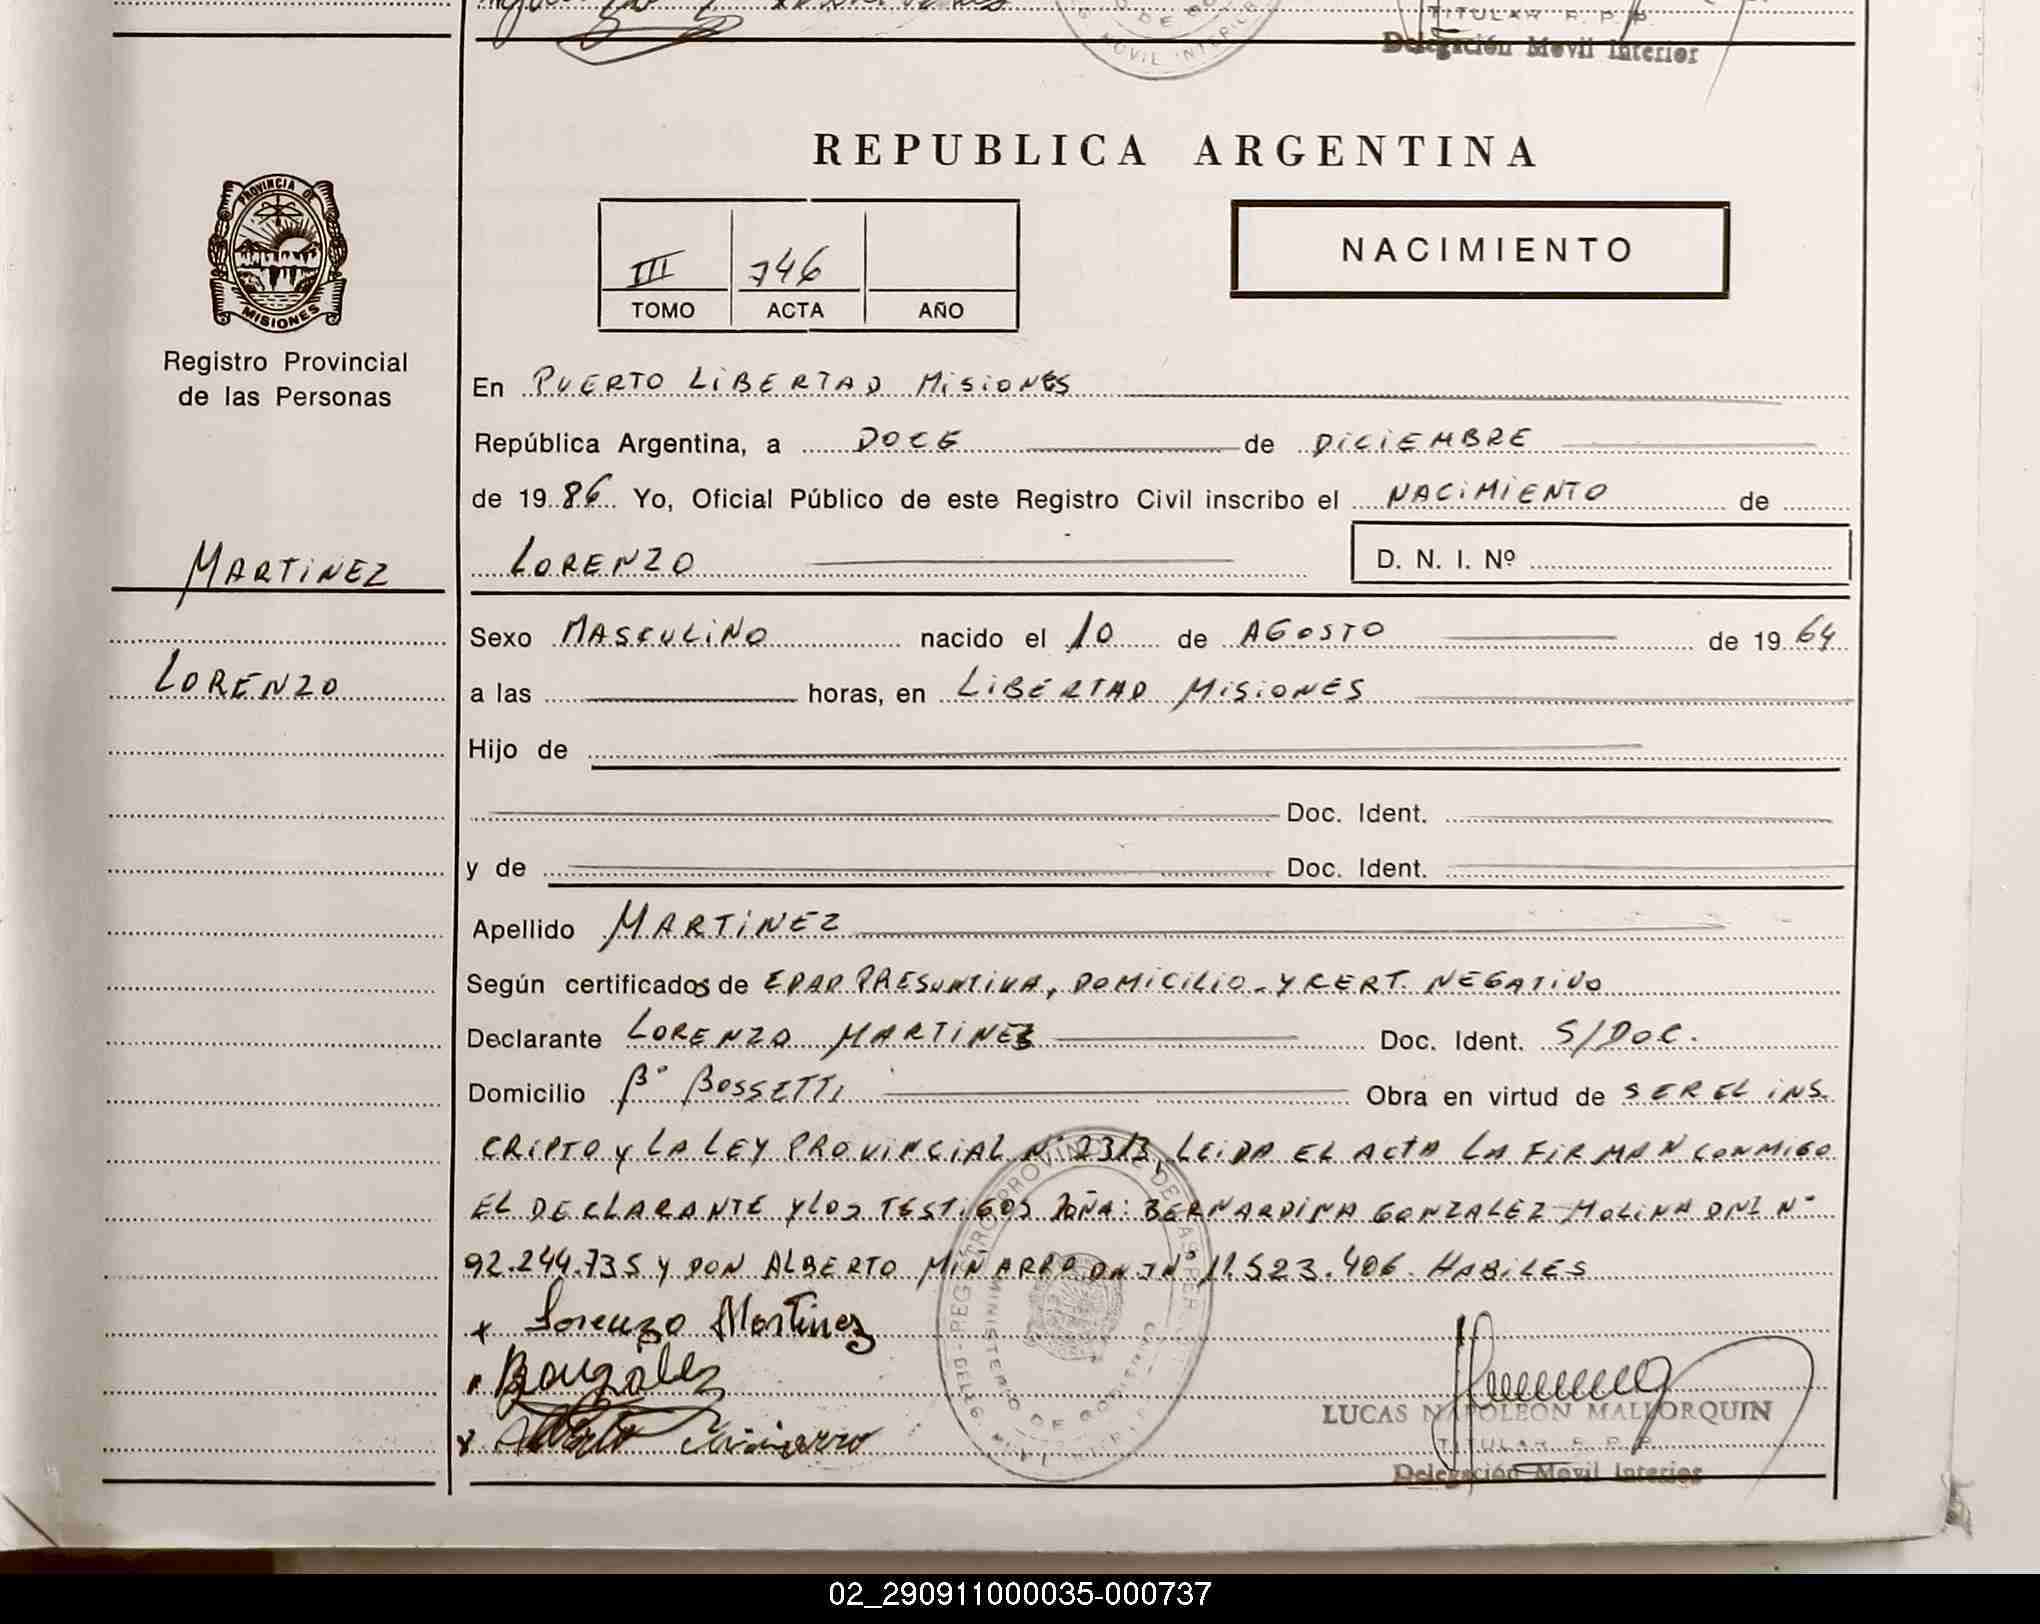 TITULAR R. P. P.
Delegación Movil Interior
MOVIL INTERIOR
REPUBLICA ARGENTINA
PROVINCIA DE
MISIONES
Registro Provincial
de las Personas
III 746
TOMO ACTA AÑO
NACIMIENTO
En PUERTO LIBERTAD MISIONES
República Argentina, a DOCE de DICIEMBRE
de 1986 Yo, Oficial Público de este Registro Civil inscribo el NACIMIENTO de
MARTINEZ
LORENZO D. N. I. Nº
Sexo MASCULINO nacido el 10 de AGOSTO de 1964
LORENZO
a las horas, en LIBERTAD MISIONES
Hijo de
Doc. Ident.
y de Doc. Ident.
Apellido MARTINEZ
Según certificados de EDAD PRESUNTIVA, DOMICILIO - Y CERT. NEGATIVO
Declarante LORENZO MARTINEZ Doc. Ident. S/DOC.
Domicilio Bº BOSSETTI Obra en virtud de SER EL INS-
CRIPTO y LA LEY PROVINCIAL Nº 2313, LEIDA EL ACTA LA FIRMAN CONMIGO
EL DECLARANTE Y LOS TESTIGOS DOÑA: BERNARDINA GONZALEZ MOLINA DNI Nº
92.244.735 y DON ALBERTO MIÑARRO DNI Nº 11.523.406 HABILES
x Lorenzo Martinez
BGonzalez
x Alberto Miñarro
LUCAS NAPOLEON MALLORQUIN
TITULAR R. P. P.
Delegación Movil Interior
02_290911000035-000737